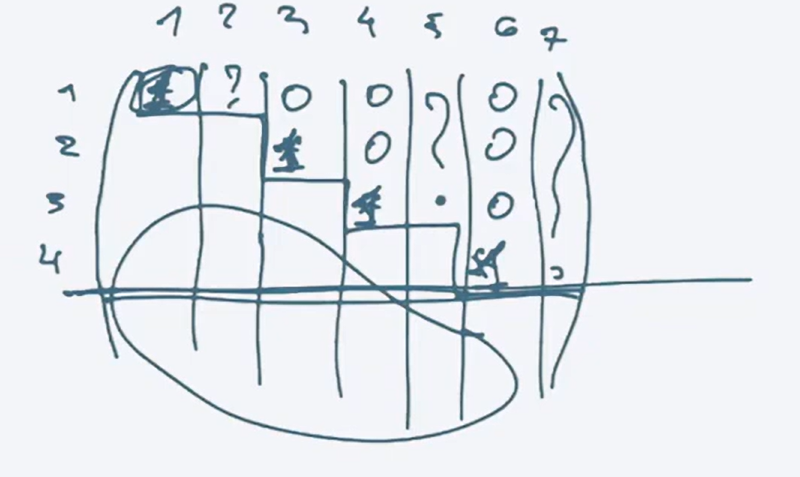 1 2 3 4 5 6 7
1 1 ? 0 0 ? 0 ?
2 1 0 0
3 1 0
4 1